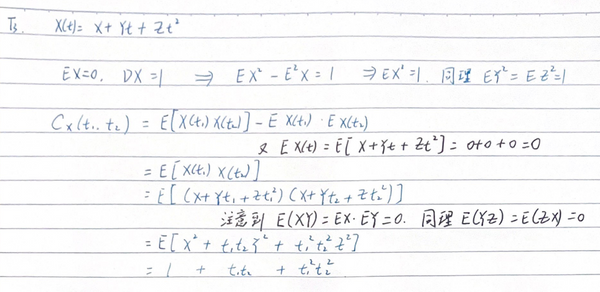 T3 X(t) = X + Yt + Zt²
EX=0, DX=1 ⇒ EX² - E²X = 1 ⇒ EX²=1. 同理 EY² = EZ²=1
Cx(t₁, t₂) = E[X(t₁) X(t₂)] - E X(t₁) · E X(t₂)
又 E X(t) = E[X + Yt + Zt²] = 0+0+0=0
= E[X(t₁) X(t₂)]
= E[(X+Yt₁+Zt₁²)(X+Yt₂+Zt₂²)]
注意到 E(XY) = EX·EY=0. 同理 E(YZ)=E(ZX)=0
= E[X² + t₁t₂Y² + t₁²t₂²Z²]
= 1 + t₁t₂ + t₁²t₂²